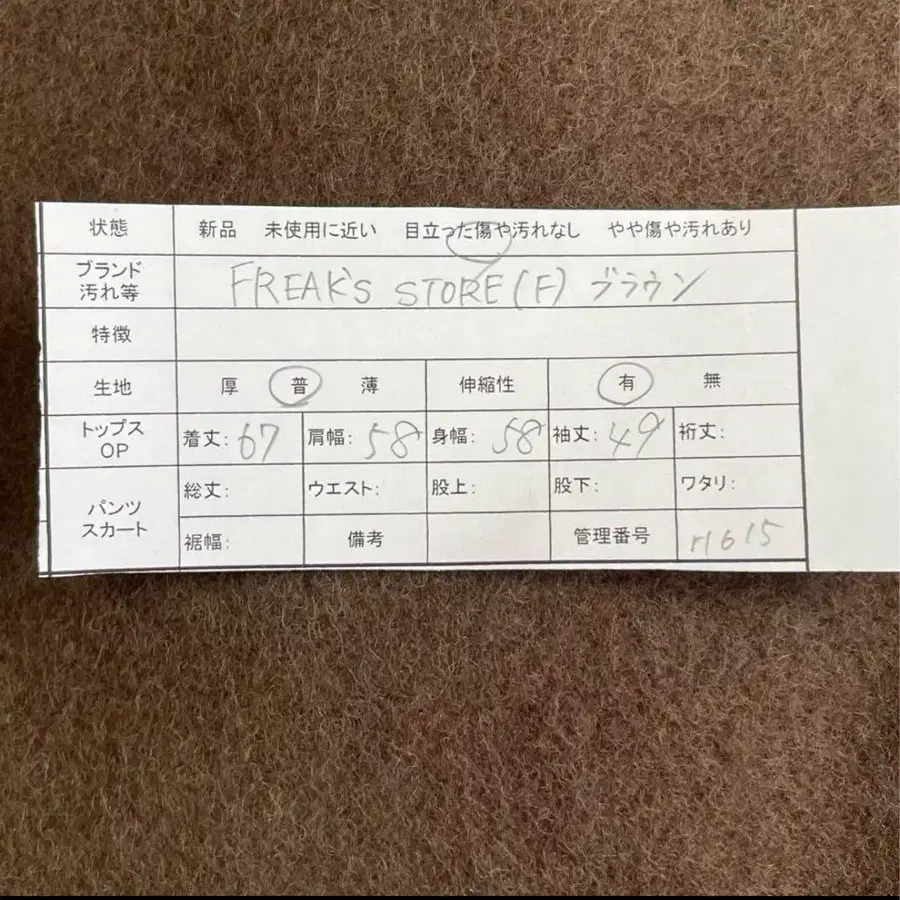 状態 新品 未使用に近い 目立った傷や汚れなし やや傷や汚れあり
ブランド
汚れ等 FREAK'S STORE(F) ブラウン
特徴
生地 厚 普 薄 伸縮性 有 無
トップス
OP 着丈: 67 肩幅: 58 身幅: 58 袖丈: 49 裄丈:
パンツ
スカート 総丈: ウエスト: 股上: 股下: ワタリ:
裾幅: 備考 管理番号 r1615